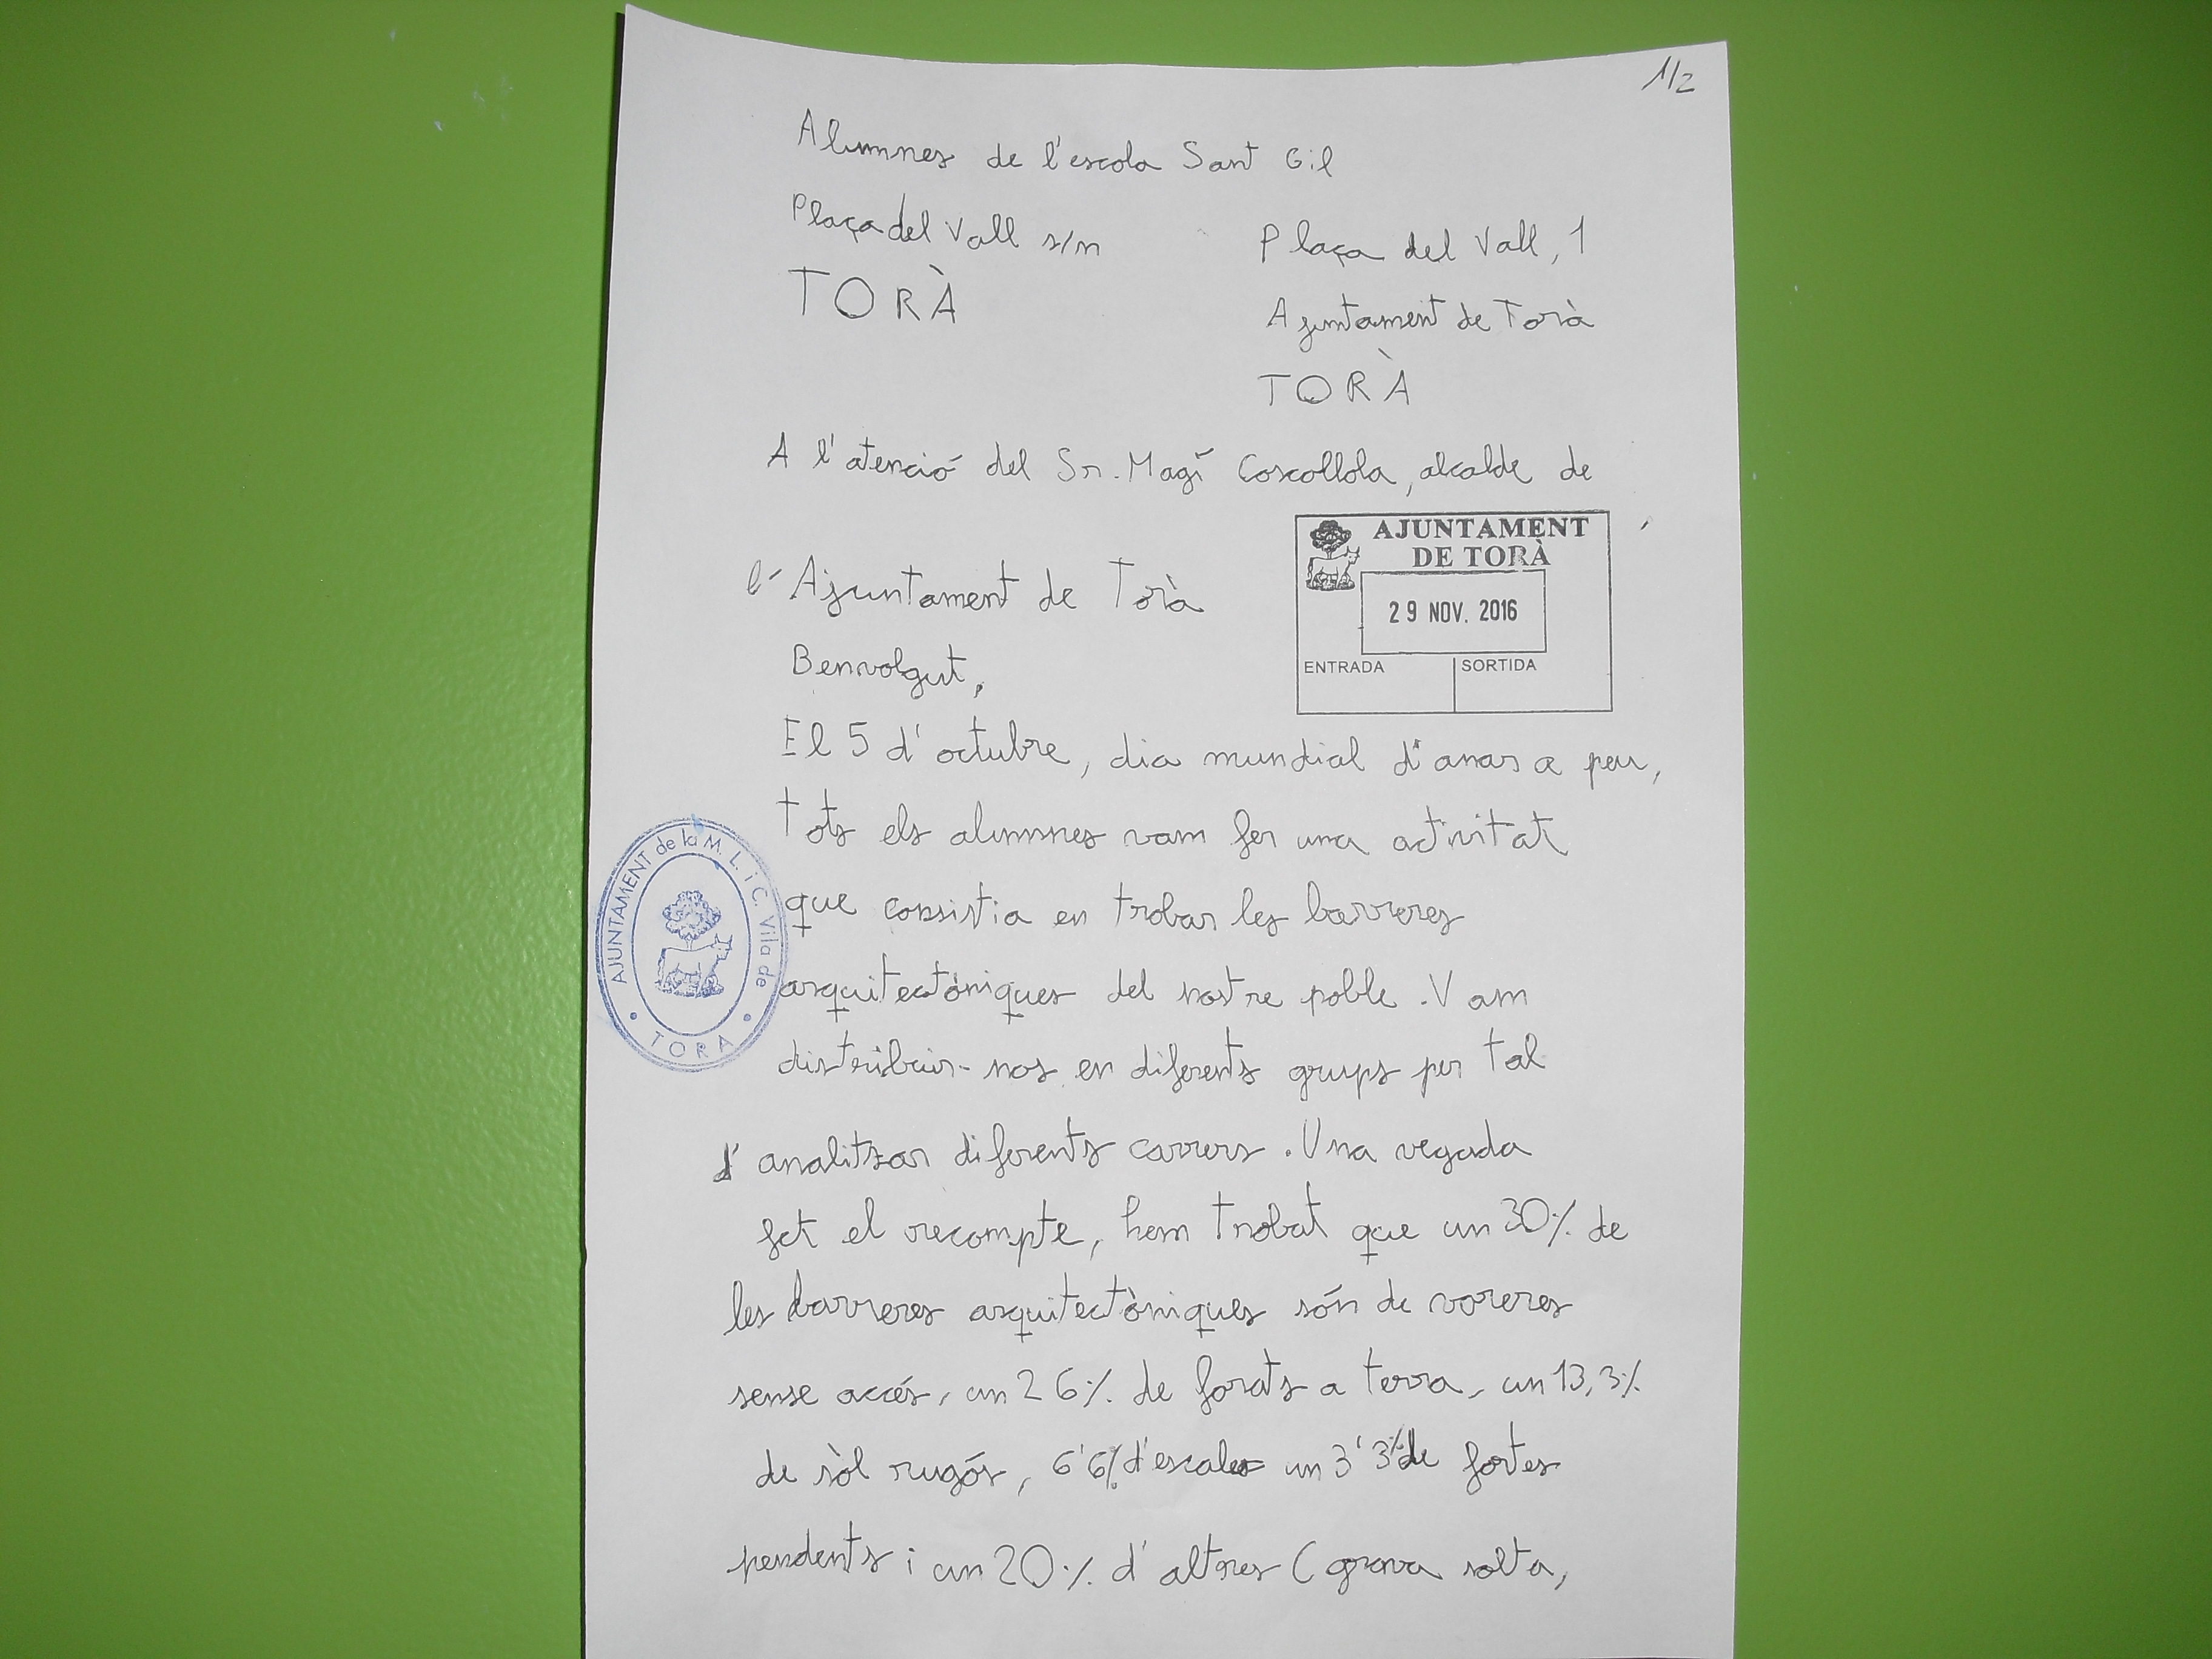 1/2
Alumnes de l'escola Sant Gil
Plaça del Vall s/n
TORÀ
Plaça del Vall, 1
Ajuntament de Torà
TORÀ
A l'atenció del Sr. Magí Coscollola, alcalde de
l'Ajuntament de Torà
AJUNTAMENT
DE TORÀ
29 NOV. 2016
ENTRADA SORTIDA
Benvolgut,
El 5 d'octubre, dia mundial d'anar a peu,
tots els alumnes vam fer una activitat
que consistia en trobar les barreres
arquitectòniques del nostre poble. Vam
distribuir-nos en diferents grups per tal
d'analitzar diferents carrers. Una vegada
fet el recompte, hem trobat que un 30% de
les barreres arquitectòniques són de voreres
sense accés, un 26% de forats a terra, un 13,3%
de sòl rugós, 6'6% d'escales un 3'3% de fortes
pendents i un 20% d'altres (grava solta,
AJUNTAMENT de la M. L. i C. Vila de
TORA